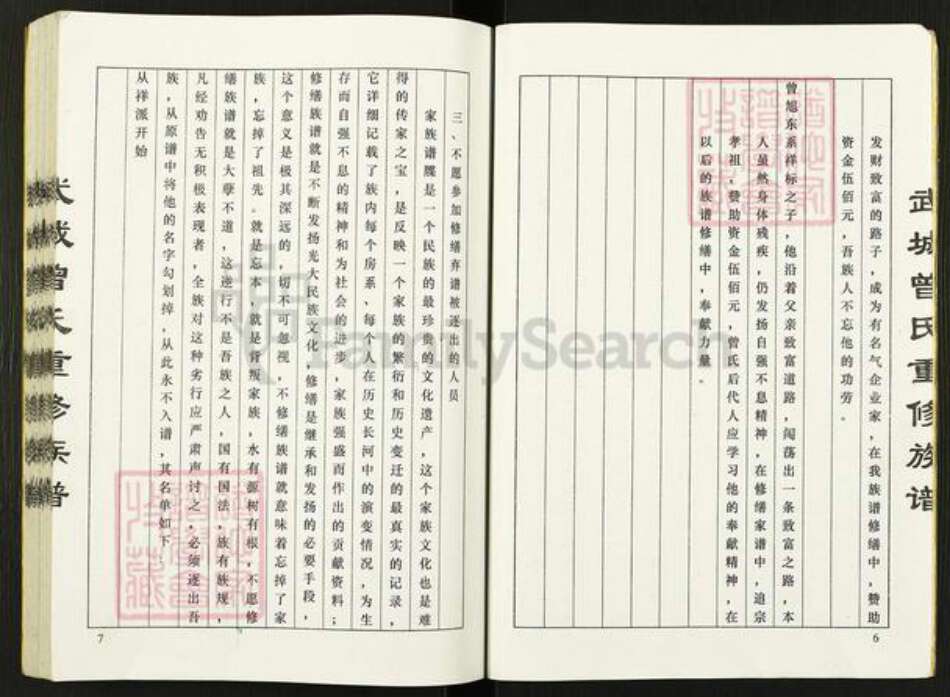 武城曾氏重修族谱
发财致富的路子，成为有名气企业家，在我族谱修缮中，赞助
资金伍佰元，吾族人不忘他的功劳。
曾旭东系祥标之子，他沿着父亲致富道路，闯荡出一条致富之路，本
人虽然身体残疾，仍发扬自强不息精神，在修缮家谱中，追宗
孝祖，赞助资金伍佰元，曾氏后代人应学习他的奉献精神，在
以后的族谱修缮中，奉献力量。
6
三、不愿参加修缮弃谱被逐出的人员
家族谱牒是一个民族的最珍贵的文化遗产，这个家族文化也是难
得的传家之宝，是反映一个家族的繁衍和历史变迁的最真实的记录，
它详细记载了族内每个房系，每个人在历史长河中的演变情况，为生
存而自强不息的精神和为社会的进步，家族强盛而作出的贡献资料；
修缮族谱就是不断发扬光大民族文化，修缮是继承和发扬的必要手段，
这个意义是极其深远的，切不可忽视，不修缮族谱就意味着忘掉了家
族，忘掉了祖先。就是忘本，就是背叛家族，水有源树有根，不愿修
缮族谱就是大孽不道，这逆行不是吾族之人，国有国法，族有族规，
凡经劝告无积极表现者，全族对这种劣行应严肃声讨之，必须逐出吾
族，从原谱中将他的名字勾划掉，从此永不入谱，其名单如下
从祥派开始
7
武城曾氏重修族谱
FamilySearch